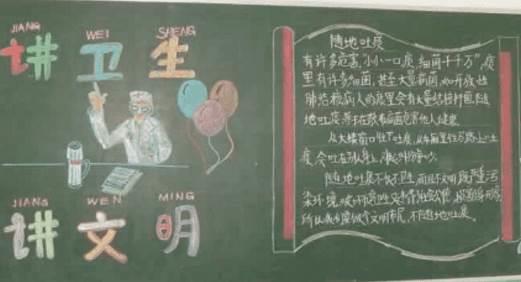 JIANG WEI SHENG
讲卫生
随地吐痰
有许多危害,小小一口痰,细菌千千万,痰
里有许多细菌,甚至大量病菌,如开放性
肺结核病人的痰里会有大量结核杆菌,随
地吐痰等于在散布病菌危害他人健康
从大楼窗口往下吐痰,从车厢里往马路上吐
痰,会吐在别人身上,
随地吐痰不仅不卫生,而且不文明,既严重污
染环境,
所以我们要做个文明市民,不随地吐痰。
JIANG WEN MING
讲文明